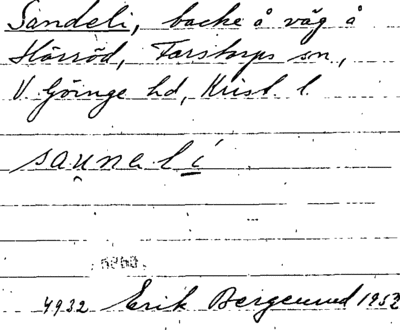 Sandeli, backe å väg å
Hörröd, Farstorps sn,
V. Göinge hd, Krist. l.
saṷnelí̠
5260
4932 Erik Bergelund 1952